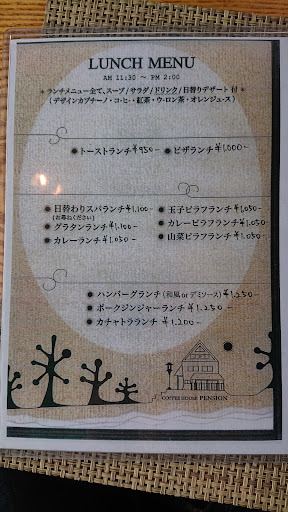 LUNCH MENU
AM 11:30 ～ PM 2:00
＊ランチメニュー全て、スープ/サラダ/ドリンク/日替りデザート 付＊
(デザインカプチーノ・コーヒー・紅茶・ウーロン茶・オレンジュース)
●トーストランチ¥950- ●ピザランチ¥1,000-
●日替わりスパランチ¥1,100- ●玉子ピラフランチ¥1,050-
(お尋ねください) ●カレーピラフランチ¥1,050-
●グラタンランチ¥1,100- ●山菜ピラフランチ¥1,050-
●カレーランチ¥1,050-
●ハンバーグランチ(和風orデミソース)¥1,250-
●ポークジンジャーランチ¥1,250-
●カチャトラランチ¥1,200-
COFFEE HOUSE PENSION